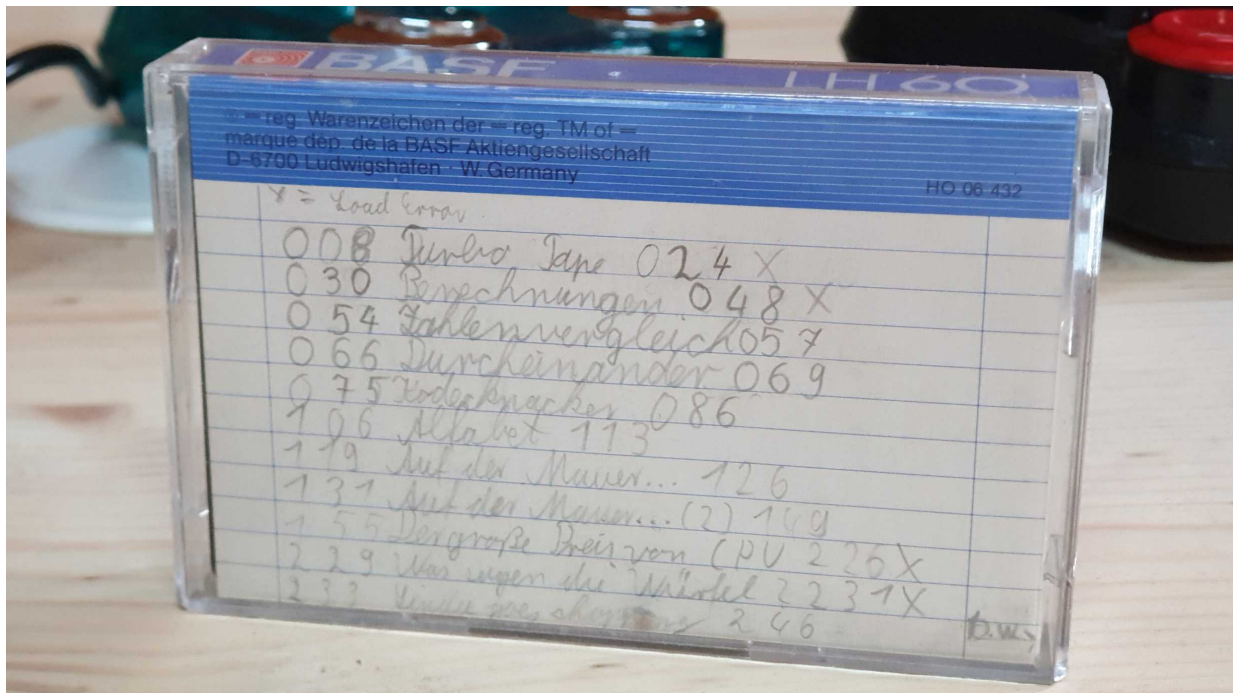 BASF LH 60
® = reg. Warenzeichen der = reg. TM of =
marque dép. de la BASF Aktiengesellschaft
D-6700 Ludwigshafen · W. Germany
HO 06 432
X = Load Error
008 Turbo Tape 024 X
030 Berechnungen 048 X
054 Zahlenvergleich 057
066 Durcheinander 069
075 Kodeknacker 086
106 Alfabet 113
119 Auf der Mauer... 126
131 Auf der Mauer... (2) 149
155 Der große Preis von CPU 226 X
229 Was sagen die Würfel? 231 X
233 goes shopping 246
b.w.